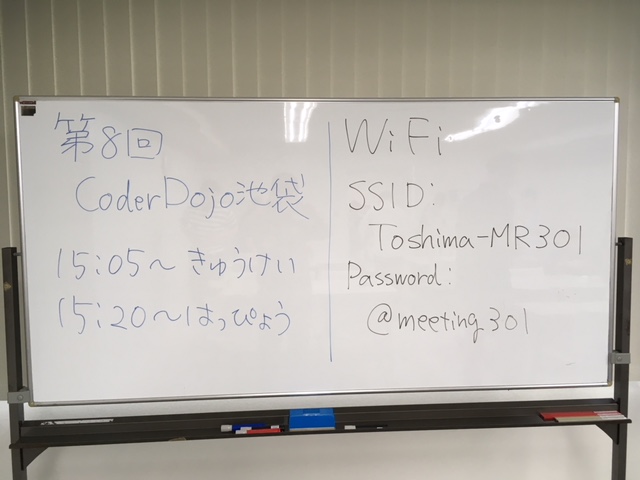 第8回
CoderDojo池袋
15:05～きゅうけい
15:20～はっぴょう
WiFi
SSID:
Toshima-MR301
Password:
@meeting301